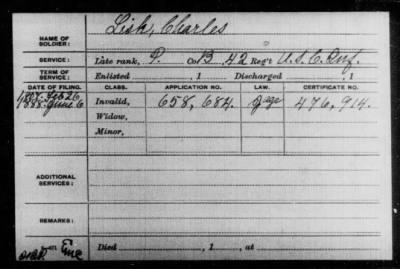 NAME OF SOLDIER: Lisk, Charles
SERVICE: Late rank, P. Co. B, 42 Reg't U.S.C. Inf.
TERM OF SERVICE: Enlisted , 1 Discharged , 1
DATE OF FILING. CLASS. APPLICATION NO. LAW. CERTIFICATE NO.
1888. June 6 Invalid, 658,684. 476,914.
Widow,
Minor,
ADDITIONAL SERVICES:
REMARKS:
Died , 1 , at